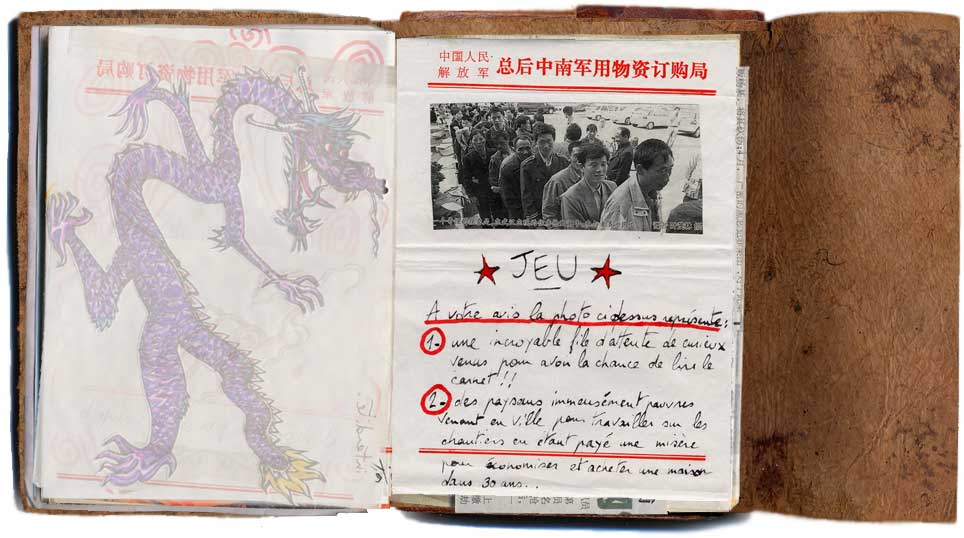 中国人民
解放军 总后中南军用物资订购局
JEU
A votre avis la photo ci dessus représente:
1- une incroyable file d'attente de curieux
venus pour avoir la chance de lire le
carnet!!
2- des paysans immensément pauvres
venant en ville pour travailler sur les
chantiers en étant payé une misère
pour économiser et acheter une maison
dans 30 ans...